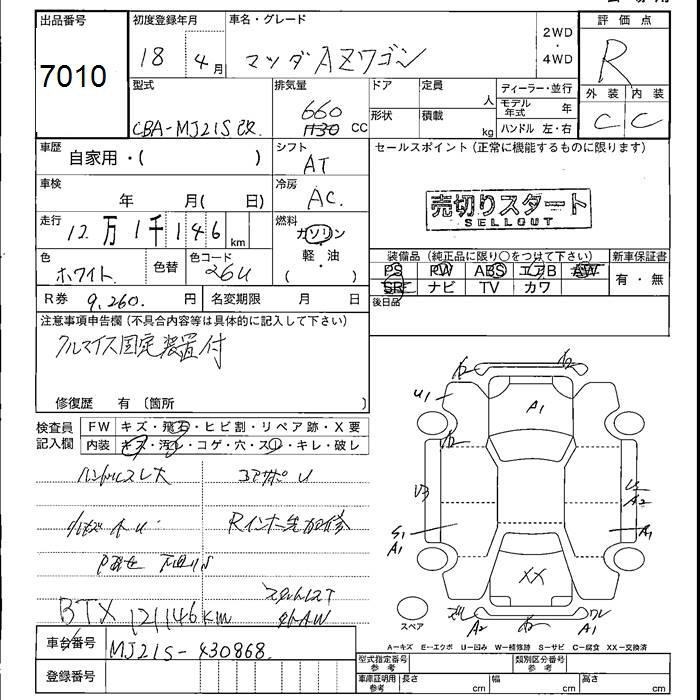 出品番号
7010
初度登録年月
18 4月
車名・グレード
マツダ AZワゴン
2WD
・
4WD
評価点
R
外装 内装
C C
型式
CBA-MJ21S改.
排気量
660
1130 CC
ドア
定員
人
形状
積載
kg
ディーラー・並行
モデル年式 年
ハンドル 左・右
車歴
自家用・( )
シフト
AT
セールスポイント (正常に機能するものに限ります)
車検
年 月( 日)
冷房
AC.
売切りスタート
SELLOUT
走行
12万1千146km
燃料
ガソリン
・
軽・油
( )
色
ホワイト
色替
色コード
26U
装備品 (純正品に限り○をつけて下さい)
新車保証書
PS PW ABS エアB AW
SR ナビ TV カワ
有・無
R券 9,260.円
名変期限 月 日
後日品
注意事項申告欄 (不具合内容等は具体的に記入して下さい)
クルマイス固定装置付
修復歴 有 〔箇所 〕
検査員
記入欄
FW キズ・飛石・ヒビ割・リペア跡・X要
内装 キズ・汚レ・コゲ・穴・スレ・キレ・破レ
ハンドルスレ大
コアサポU
BTX 121146km
車台番号
MJ21S-430868.
登録番号
A2 A2
U1
A1
A2
U3
S1
A1
A2
A1
XX
A2
A1
スペア
A=キズ E=エクボ U=凹み W=補修跡 S=サビ C=腐食 XX=交換済
型式指定番号
参考
類別区分番号
参考
車庫証明用
参考
長さ cm
幅 cm
高さ cm